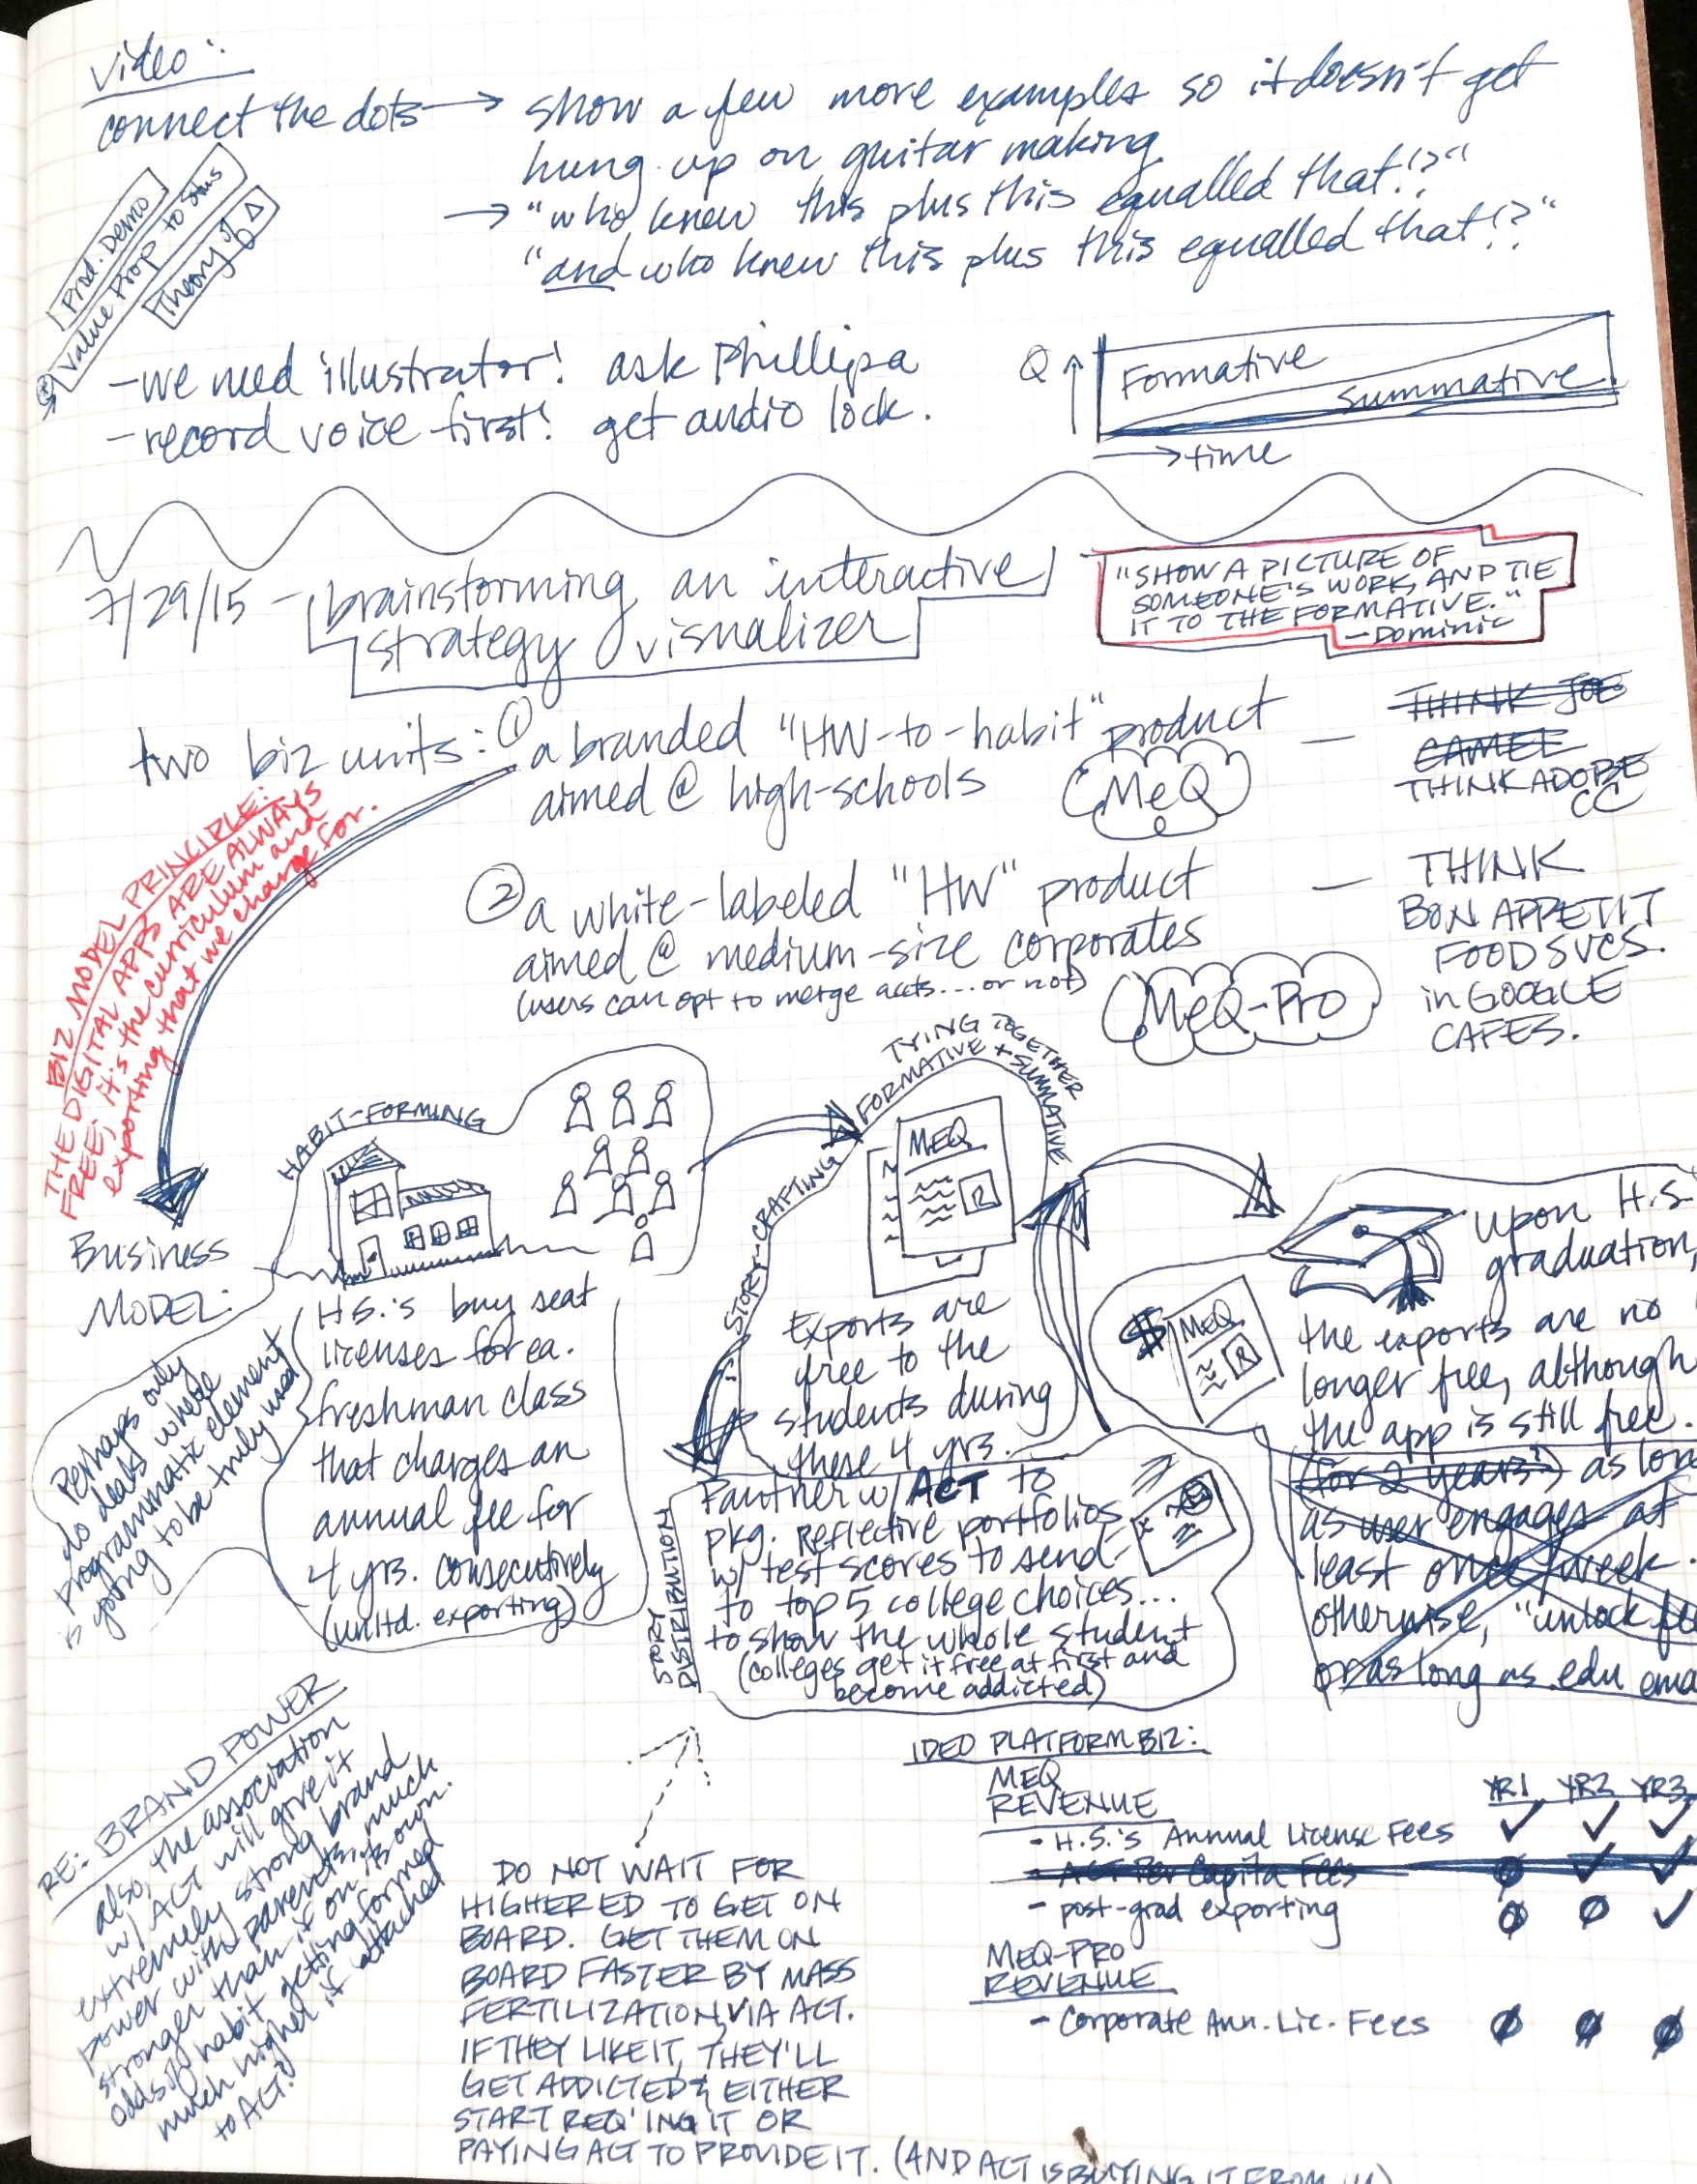 Video:
connect the dots → show a few more examples so it doesn't get
hung up on guitar making
→ "who knew this plus this equalled that!?"
"and who knew this plus this equalled that!?"
Prod. Demo
Value Prop to Stus
Theory of Δ
- we need illustrator! ask Phillipa
- record voice first! get audio lock.
Q ↑
Formative
Summative
→ time
7/29/15 - brainstorming an interactive
strategy visualizer
"SHOW A PICTURE OF
SOMEONE'S WORK, AND TIE
IT TO THE FORMATIVE."
- Dominic
two biz units: ① a branded "HW-to-habit" product
aimed @ high-schools
MeQ
— THINK JOE
CAMEL
THINK ADOBE
CC
② a white-labeled "HW" product
aimed @ medium-size corporates
(users can opt to merge accts... or not)
MeQ-Pro
— THINK
BON APPETIT
FOOD SVCS.
in GOOGLE
CAFES.
BIZ MODEL PRINCIPLE:
THE DIGITAL APPS ARE ALWAYS
FREE; it's the curriculum and
exporting that we charge for.
BUSINESS
MODEL:
HABIT-FORMING
H.S.'s buy seat
licenses for ea.
freshman class
that charges an
annual fee for
4 yrs. consecutively
(unltd. exporting)
Perhaps only
do deals where
programmatic element
is going to be truly used
STORY-CRAFTING
TYING TOGETHER
FORMATIVE + SUMMATIVE
MEQ
R
Exports are
free to the
students during
these 4 yrs.
STORY
DISTRIBUTION
Partner w/ ACT to
pkg. Reflective portfolios
w/ test scores to send
to top 5 college choices...
to show the whole student
(colleges get it free at first and
become addicted)
$
MEQ
R
Upon H.S.
graduation,
the exports are no
longer free, although
the app is still free.
(for 2 years!) as long
as user engages at
least once/week.
otherwise, "unlock fee
or as long as .edu ema
RE: BRAND POWER
also, the association
w/ ACT will give it
extremely strong brand
power with parents, much
stronger than if on its own.
odds of habit getting formed
much higher if attached
to ACT?
DO NOT WAIT FOR
HIGHER ED TO GET ON
BOARD. GET THEM ON
BOARD FASTER BY MASS
FERTILIZATION, VIA ACT.
IF THEY LIKE IT, THEY'LL
GET ADDICTED & EITHER
START REQ'ING IT OR
PAYING ACT TO PROVIDE IT. (AND ACT IS BUYING IT FROM
IDEO PLATFORM BIZ:
MEQ
REVENUE
YR1 YR2 YR3
- H.S.'s Annual License Fees ✓ ✓ ✓
- ACT Per Capita Fees Ø ✓ ✓
- post-grad exporting Ø Ø ✓
MEQ-PRO
REVENUE
- Corporate Ann. Lic. Fees Ø Ø Ø